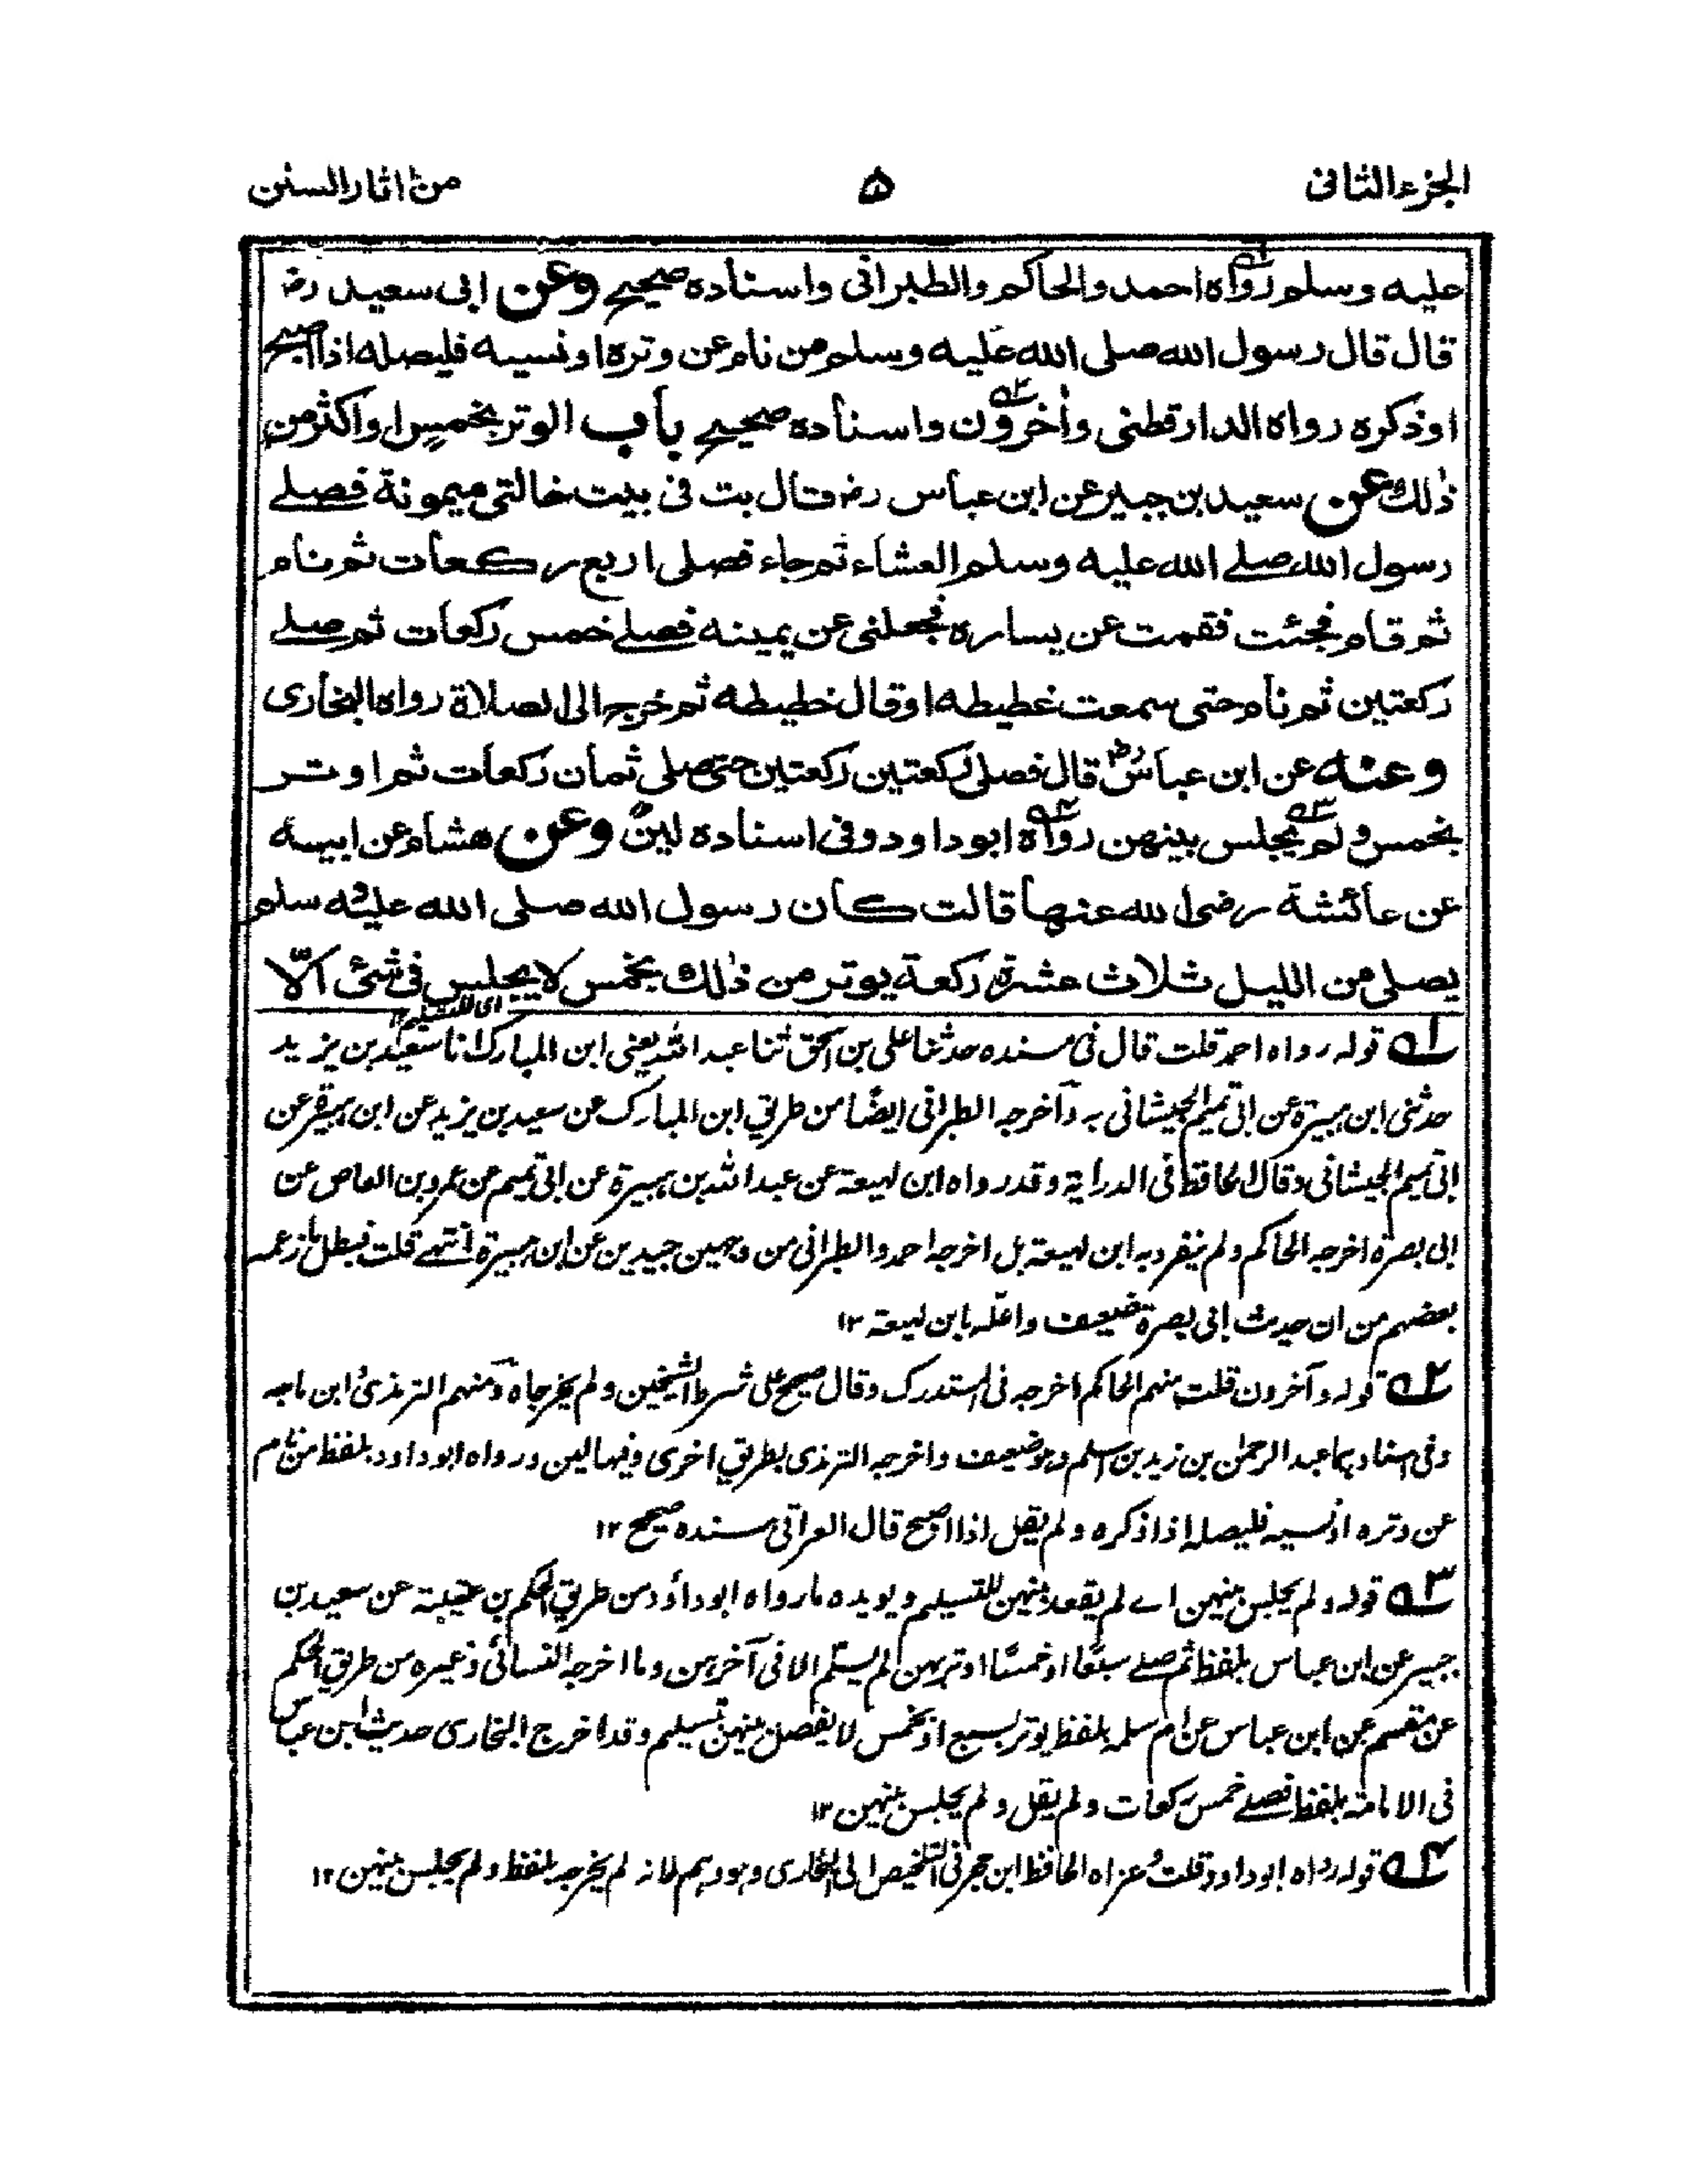 الجزء الثانى ۵ من اثار السنن
عليه وسلم رواه احمد والحاكم والطبرانى واسناده صحيح وعن ابى سعيد رضـ
قال قال رسول الله صلى الله عليه وسلم من نام عن وتره او نسيه فليصله اذا اصبح
او ذكره رواه الدارقطنى واٰخرون واسناده صحيح باب الوتر بخمس او اكثر من
ذٰلك عن سعيد بن جبير عن ابن عباس رضـ قال بت فى بيت خالتى ميمونة فصلے
رسول الله صلے الله عليه وسلم العشاء ثم جاء فصلى اربع ركعات ثم نام
ثم قام فجئت فقمت عن يساره فجعلنى عن يمينه فصلے خمس ركعات ثم صلے
ركعتين ثم نام حتى سمعت غطيطه او قال خطيطه ثم خرج الى الصلاة رواه البخارى
وعنه عن ابن عباس رضـ قال فصلى ركعتين ركعتين حتى صلى ثمان ركعات ثم اوتر
بخمس و لم يجلس بينهن رواه ابو داود وفى اسناده لين وعن هشام عن ابيه
عن عائشة رضى الله عنها قالت كان رسول الله صلى الله عليه وسلم
يصلى من الليل ثلاث عشرة ركعة يوتر من ذٰلك بخمس لا يجلس فى شئ الّا
اى للتسليم ۱۲
۱ قوله رواه احمد قلت قال فى مسنده حدثنا على بن اسحق ثنا عبد الله يعنى ابن المبارك انا سعيد بن يزيد
حدثنى ابن هبيرة عن ابى تميم الجيشانى به وآخرجه الطبرانى ايضًا من طريق ابن المبارك عن سعيد بن يزيد عن ابن هبيرة عن
ابى تميم الجيشانى وقال الحافظ فى الدراية وقد رواه ابن لهيعة عن عبد الله بن هبيرة عن ابى تميم عن عمرو بن العاص عن
ابى بصرة اخرجه الحاكم ولم ينفرد به ابن لهيعة بل اخرجه احمد والطبرانى من وجهين جيدين عن ابن هبيرة انتهے قلت فبطل ما زعمه
بعضهم من ان حديث ابى بصرة ضعيف واعلّه بابن لهيعة ۱۲
۲ قوله وآخرون قلت منهم الحاكم اخرجه فى المستدرك وقال صحيح على شرط الشيخين ولم يخرجاه ومنهم الترمذى وابن ماجه
وفى اسنادهما عبد الرحمٰن بن زيد بن اسلم وهو ضعيف واخرجه الترمذى بطريق اخرى وفيها لين ورواه ابو داود بلفظ من نام
عن وتره او نسيه فليصله اذا ذكره ولم يقل اذا اصبح قال العراقى سنده صحيح ۱۲
۳ قوله ولم يجلس بينهن اے لم يقعد بينهن للتسليم ويويده ما رواه ابو داؤد من طريق الحكم بن عتيبة عن سعيد بن
جبير عن ابن عباس بلفظ ثم صلے سبعًا او خمسًا اوتر بهن لم يسلّم الا فى آخرهن وما اخرجه النسائى وغيره من طريق الحكم
عن مقسم عن ابن عباس عن ام سلمه بلفظ يوتر بسبع او بخمس لا يفصل بينهن بتسليم وقد اخرج البخارى حديث ابن عباس
فى الامامة بلفظ فصلے خمس ركعات ولم يقل ولم يجلس بينهن ۱۲
۴ قوله رواه ابو داود قلت وعزاه الحافظ ابن حجر فى التلخيص الى البخارى وهو وهم لانه لم يخرجه بلفظ ولم يجلس بينهن ۱۲